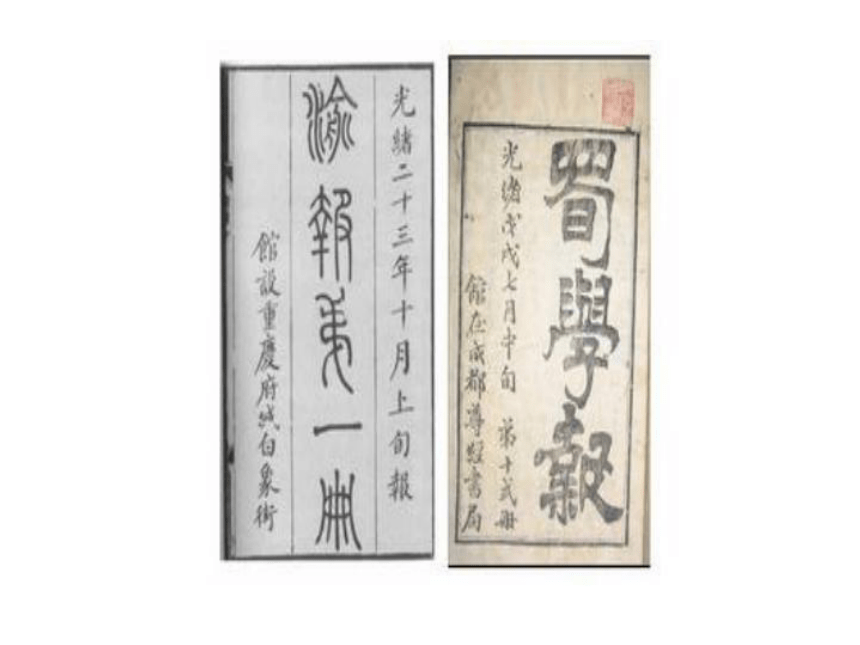 光緒二十三年十月上旬報
渝報第一冊
館設重慶府城白象街
蜀學報
光緒戊戌七月中旬 第十弍冊
館在成都尊經書局